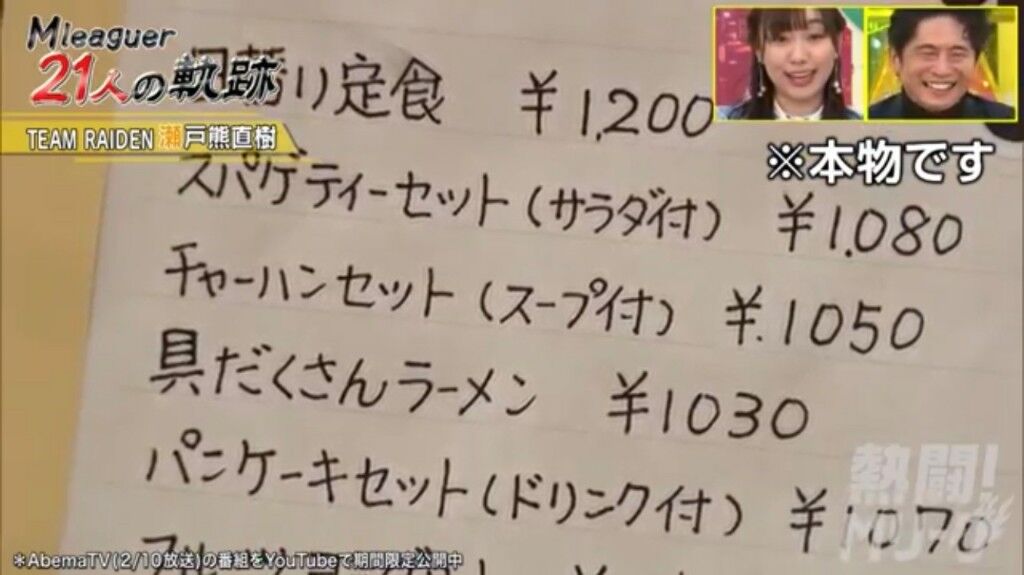 Mleaguer
21人の軌跡
TEAM RAIDEN 瀬戸熊直樹
り定食 ¥1,200
※本物です
スパゲティーセット(サラダ付) ¥1,080
チャーハンセット(スープ付) ¥1050
具だくさんラーメン ¥1030
パンケーキセット(ドリンク付) ¥1070
熱闘!
*AbemaTV(2/10放送)の番組をYouTubeで期間限定公開中